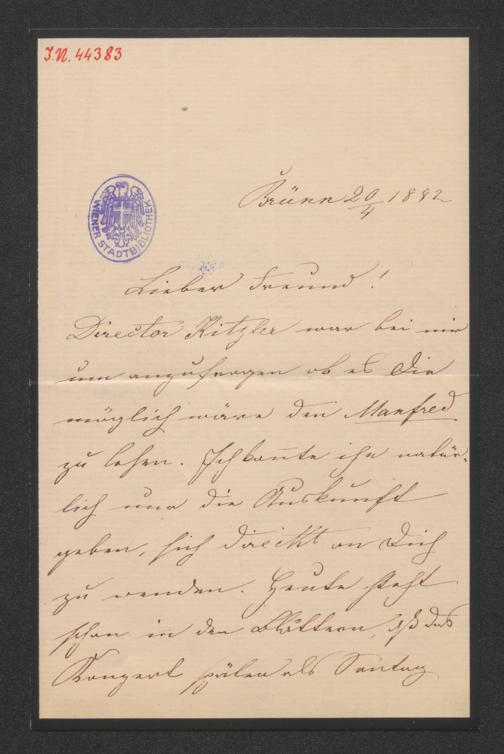 I.N. 44383
WIENER STADTBIBLIOTHEK
Brünn 20/4 1882
Lieber Freund!
Director Kitzler war bei mir
um anzufragen ob es Dir
möglich wäre den Manfred
zu lesen. Ich konnte ihm natür-
lich nur die Auskunft
geben, sich direckt an Dich
zu wenden. Heute steht
schon in den Blättern, daß das
Konzert später als Sontag